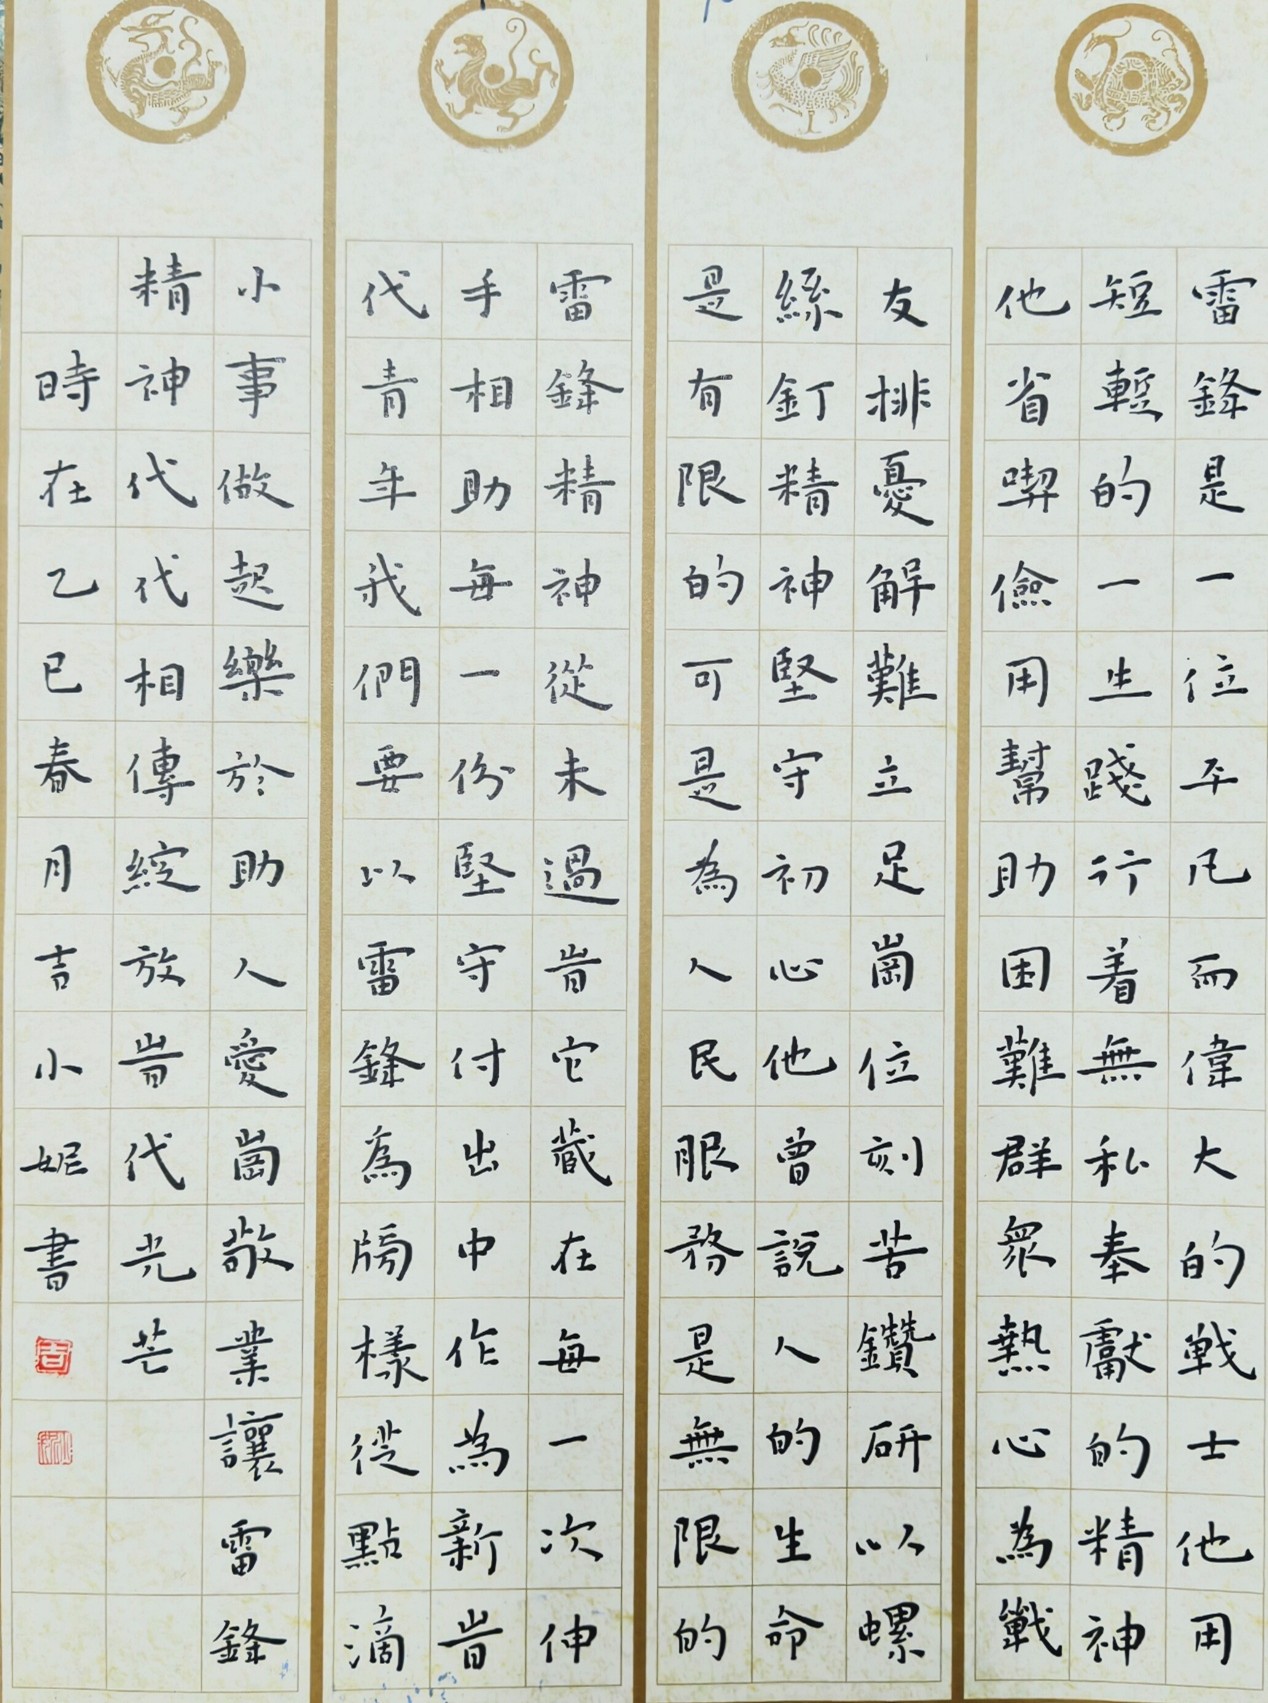 雷鋒是一位平凡而偉大的戰士他用
短輕的一生踐行着無私奉獻的精神
他省喫儉用幫助困難群眾熱心為戰
友排憂解難立足崗位刻苦鑽研以螺
絲釘精神堅守初心他曾說人的生命
是有限的可是為人民服務是無限的
雷鋒精神從未過旹它藏在每一次伸
手相助每一份堅守付出中作為新旹
代青年我們要以雷鋒為牓樣從點滴
小事做起樂於助人愛崗敬業讓雷鋒
精神代代相傳綻放旹代光芒
時在乙巳春月吉小妮書